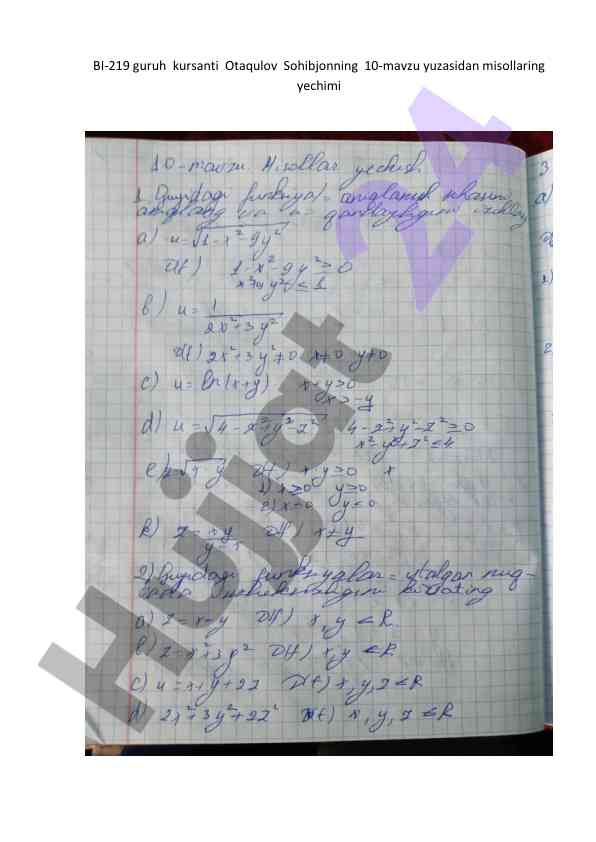 BI-219 guruh kursanti Otaqulov Sohibjonning 10-mavzu yuzasidan misollaring
yechimi
10-mavzu. Misollar yechish.
1. Quyidagi funksiyal aniqlanish sohasini
aniqlang va
a) u=√1-x²-9y²
D(f) 1-x²-9y²≥0
x²+9y²≤1
b) u= 1/2x²+3y²
D(f) 2x²+3y²≠0 x≠0 y≠0
c) u=ln(x+y) x+y>0
x>-y
d) u=√4-x²+y²-z² 4-x²+y²-z²≥0
x²-y²+z²≤4
D(f) x y>0 x
1) x≥0 y≥0
2) x<0 y<0
k) D(f) x≠y
2) Quyidagi funksiyalar
a) z=x-y D(f) x,y ∈R
b) z=x²+3y² D(f) x,y ∈R
c) u=x+y+2z D(f) x,y,z ∈R
d) 2x²+3y²+2z² D(f) x,y,z ∈R
3
a)
Hujjat 24